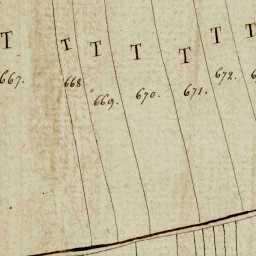 T T T T T T T
667. 668 669. 670. 671. 672.